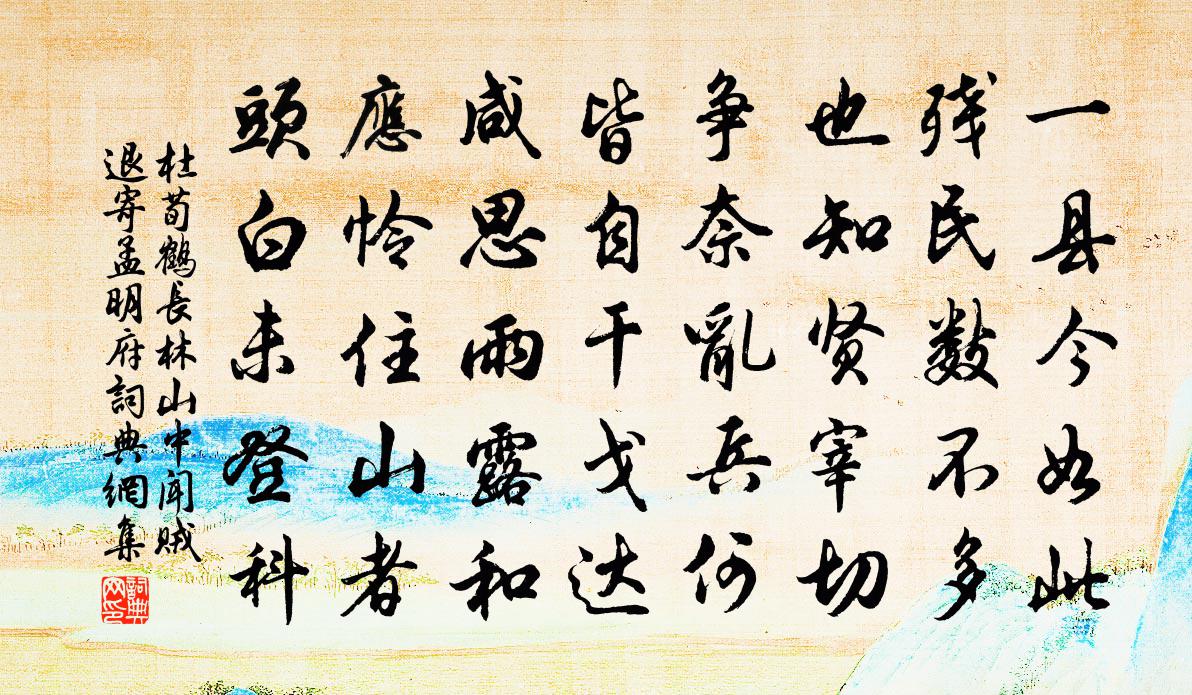 一县今如此
残民数不多
也知贤宰切
争奈亂兵何
皆自干戈达
咸思雨露和
應怜住山者
頭白未登科
杜荀鶴長林山中闻贼
退寄孟明府詞典網集
詞典网印